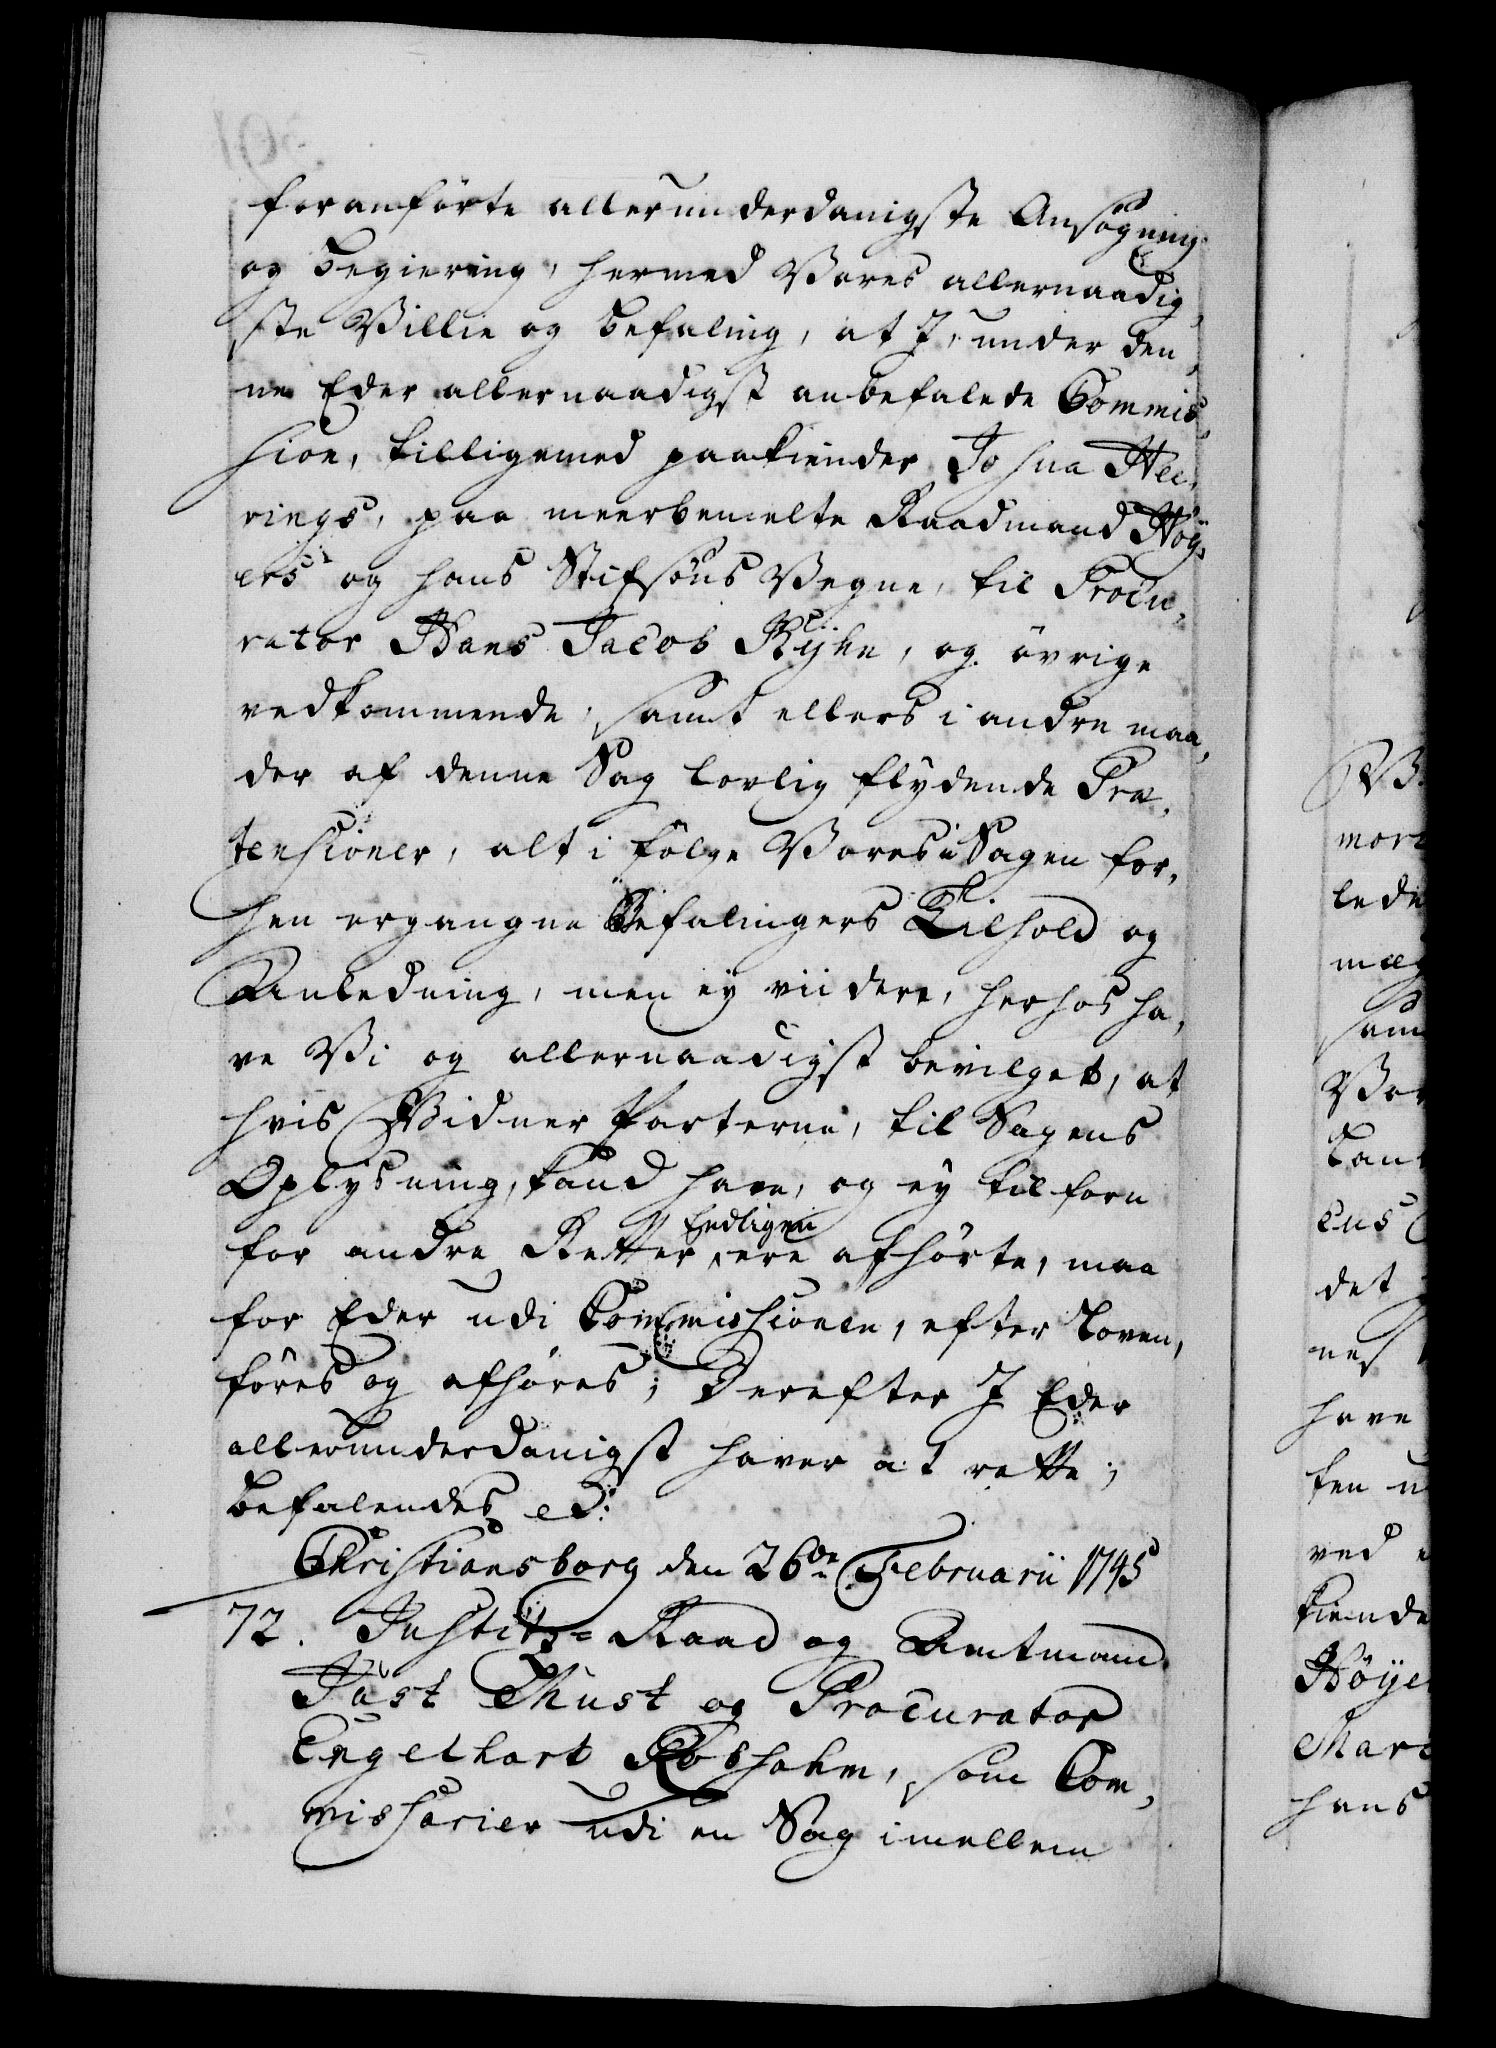 foranförte allerunderdanigste Ansögning
og Begiering, hermed Vores allernaadig,
ste Villie og Befaling, at I, under den,
ne Eder allernaadigst anbefalede Commis,
sion, tilligemed paakiender Josua Hee,
rings, paa meerbemelte Raadmand Höy,
ers og hans Stifsöns Vegne, til Procu,
rator Hans Jacob Ryhe, og övrige
vedkommende, samt ellers i andre maa,
der af denne Sag lovlig flydende Præ,
tensioner, alt i fölge Vores i Sagen for,
hen ergangne Befalingers Tilhold og
Anledning, men ey viidere, herhos ha,
ve Vi og allernaadigst bevilget, at
hvis Vidner Parterne, til Sagens
Oplysning, kand have, og ey tilforn
for andre Retter Eedligen ere afhörte, maa
for Eder udi Commissionen, efter Loven,
föres og afhöres; Derefter I Eder
allerunderdanigst haver at rette;
Befalendes ed:
Christiansborg den 26de Februarii 1745
72. Justitz-Raad og Amtmand
Just Must og Procurator
Engelhart Rosholm, som Com,
missarier udi en Sag imellem
mort
lede
sam
Vor
det
ned
have
ten u
ved
kiende
Höyer
Marc
hans